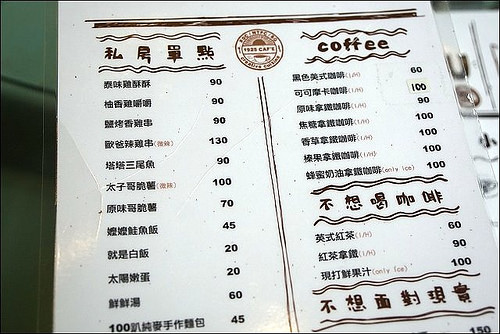 私房單點
泰味雞酥酥 90
柚香雞嚼嚼 90
鹽烤香雞串 90
歐爸辣雞串(微辣) 130
塔塔三尾魚 90
太子哥脆薯(微辣) 100
原味哥脆薯 70
嬤嬤鮭魚飯 45
就是白飯 20
太陽嫩蛋 20
鮮鮮湯 60
100趴純麥手作麵包 45
1935 CAFE
coffee
黑色美式咖啡(I/H) 60
可可摩卡咖啡(I/H) 100
原味拿鐵咖啡(I/H) 90
焦糖拿鐵咖啡(I/H) 100
香草拿鐵咖啡(I/H) 100
榛果拿鐵咖啡(I/H) 100
蜂蜜奶油拿鐵咖啡(only ice) 100
不想喝咖啡
英式紅茶(I/H) 60
紅茶拿鐵(I/H) 90
現打鮮果汁(only ice) 100
不想面對現實
150